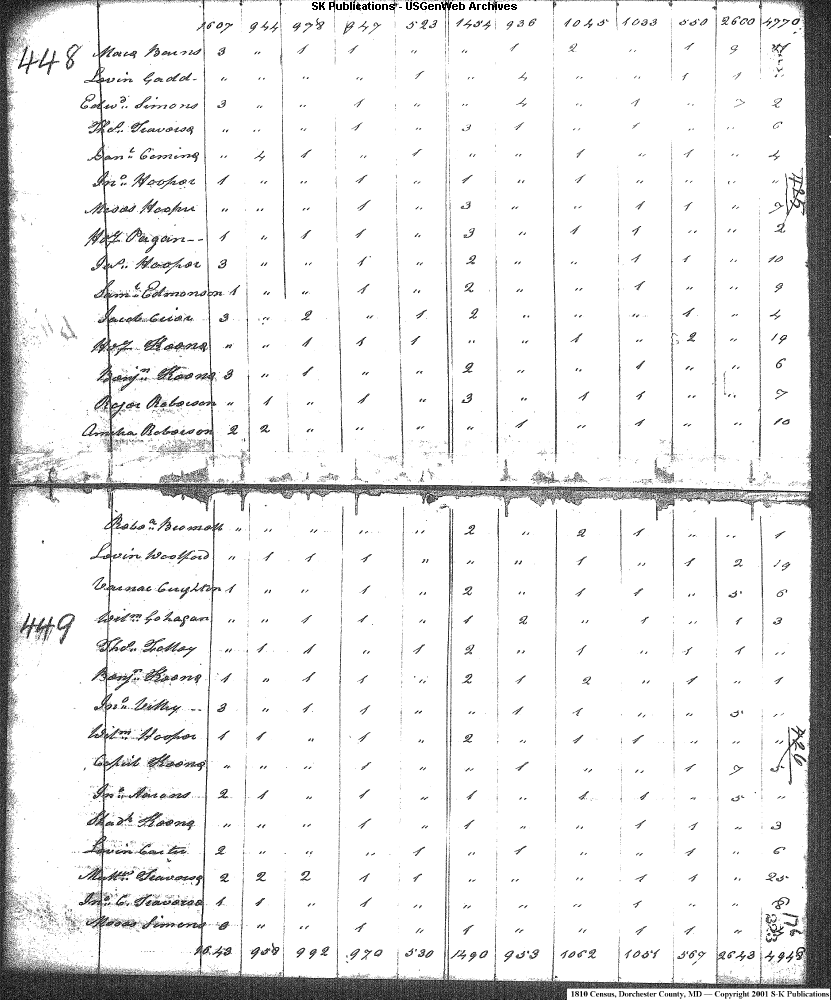 SK Publications - USGenWeb Archives
1607 944 978 947 523 1454 936 1045 1033 550 2600 4770
448
3 " 1 1 " " 1 2 " 1 9
Levin Gadd " " " " 1 " 4 " " 1 1
Edwd. Simons 3 " " 1 " " 4 " 1 " 7 2
Thos. Traverse " " " 1 " 3 1 " 1 " " 6
" 4 1 " 1 " " 1 " 1 " 4
Jno. Hooper 1 " " 1 " 1 " 1 " " "
Moses Hooper " " " 1 " 3 " " 1 1 " 7
425
Pagan 1 " 1 1 " 3 " 1 1 " " 2
Hooper 3 " " 1 " 2 " " 1 1 " 10
Saml. Edmonson 1 " " 1 " 2 " " 1 " " 9
Jacob 3 " 2 " 1 2 " " " 1 " 4
Keene " " 1 1 1 " " 1 " 2 " 19
Benjn. Keene 3 " 1 " " 2 " " 1 " " 6
Roger Roberson " 1 " 1 " 3 " 1 1 " " 7
Roberson 2 2 " " " " 1 " 1 " " 10
" " " " " 2 " 2 1 " " 1
Levin Woolford " 1 1 1 " " " 1 " 1 2 19
Creighton 1 " " 1 " 2 " 1 1 " 5 6
449
Willm. Gohagan " " 1 1 " 1 2 " 1 " 1 3
Thos. " 1 1 " 1 2 " 1 " 1 1 "
Benjn. Keene 1 " 1 1 " 2 1 2 " 1 " 1
Jno. 3 " 1 1 " " 1 1 " " 5 "
Willm. Hooper 1 1 " 1 " 2 " 1 1 " " "
426
Keene " " " 1 " " 1 " " 1 7 5
Jno. Aarons 2 1 " 1 " 1 " 1 1 " 5 "
Shadk. Keene " " " 1 " 1 " " 1 1 " 3
Levin Carter 2 " " " 1 " 1 " " 1 " 6
Traverse 2 2 2 1 1 " " " 1 1 " 25
Jno. C. Traverse 1 1 " 1 " " " " 1 " " 8
Moses Simons 3 " " 1 " 1 " " 1 1 "
176
1643 958 992 970 530 1490 953 1062 1051 567 2643 4948
1810 Census, Dorchester County, MD -- Copyright 2001 S-K Publications